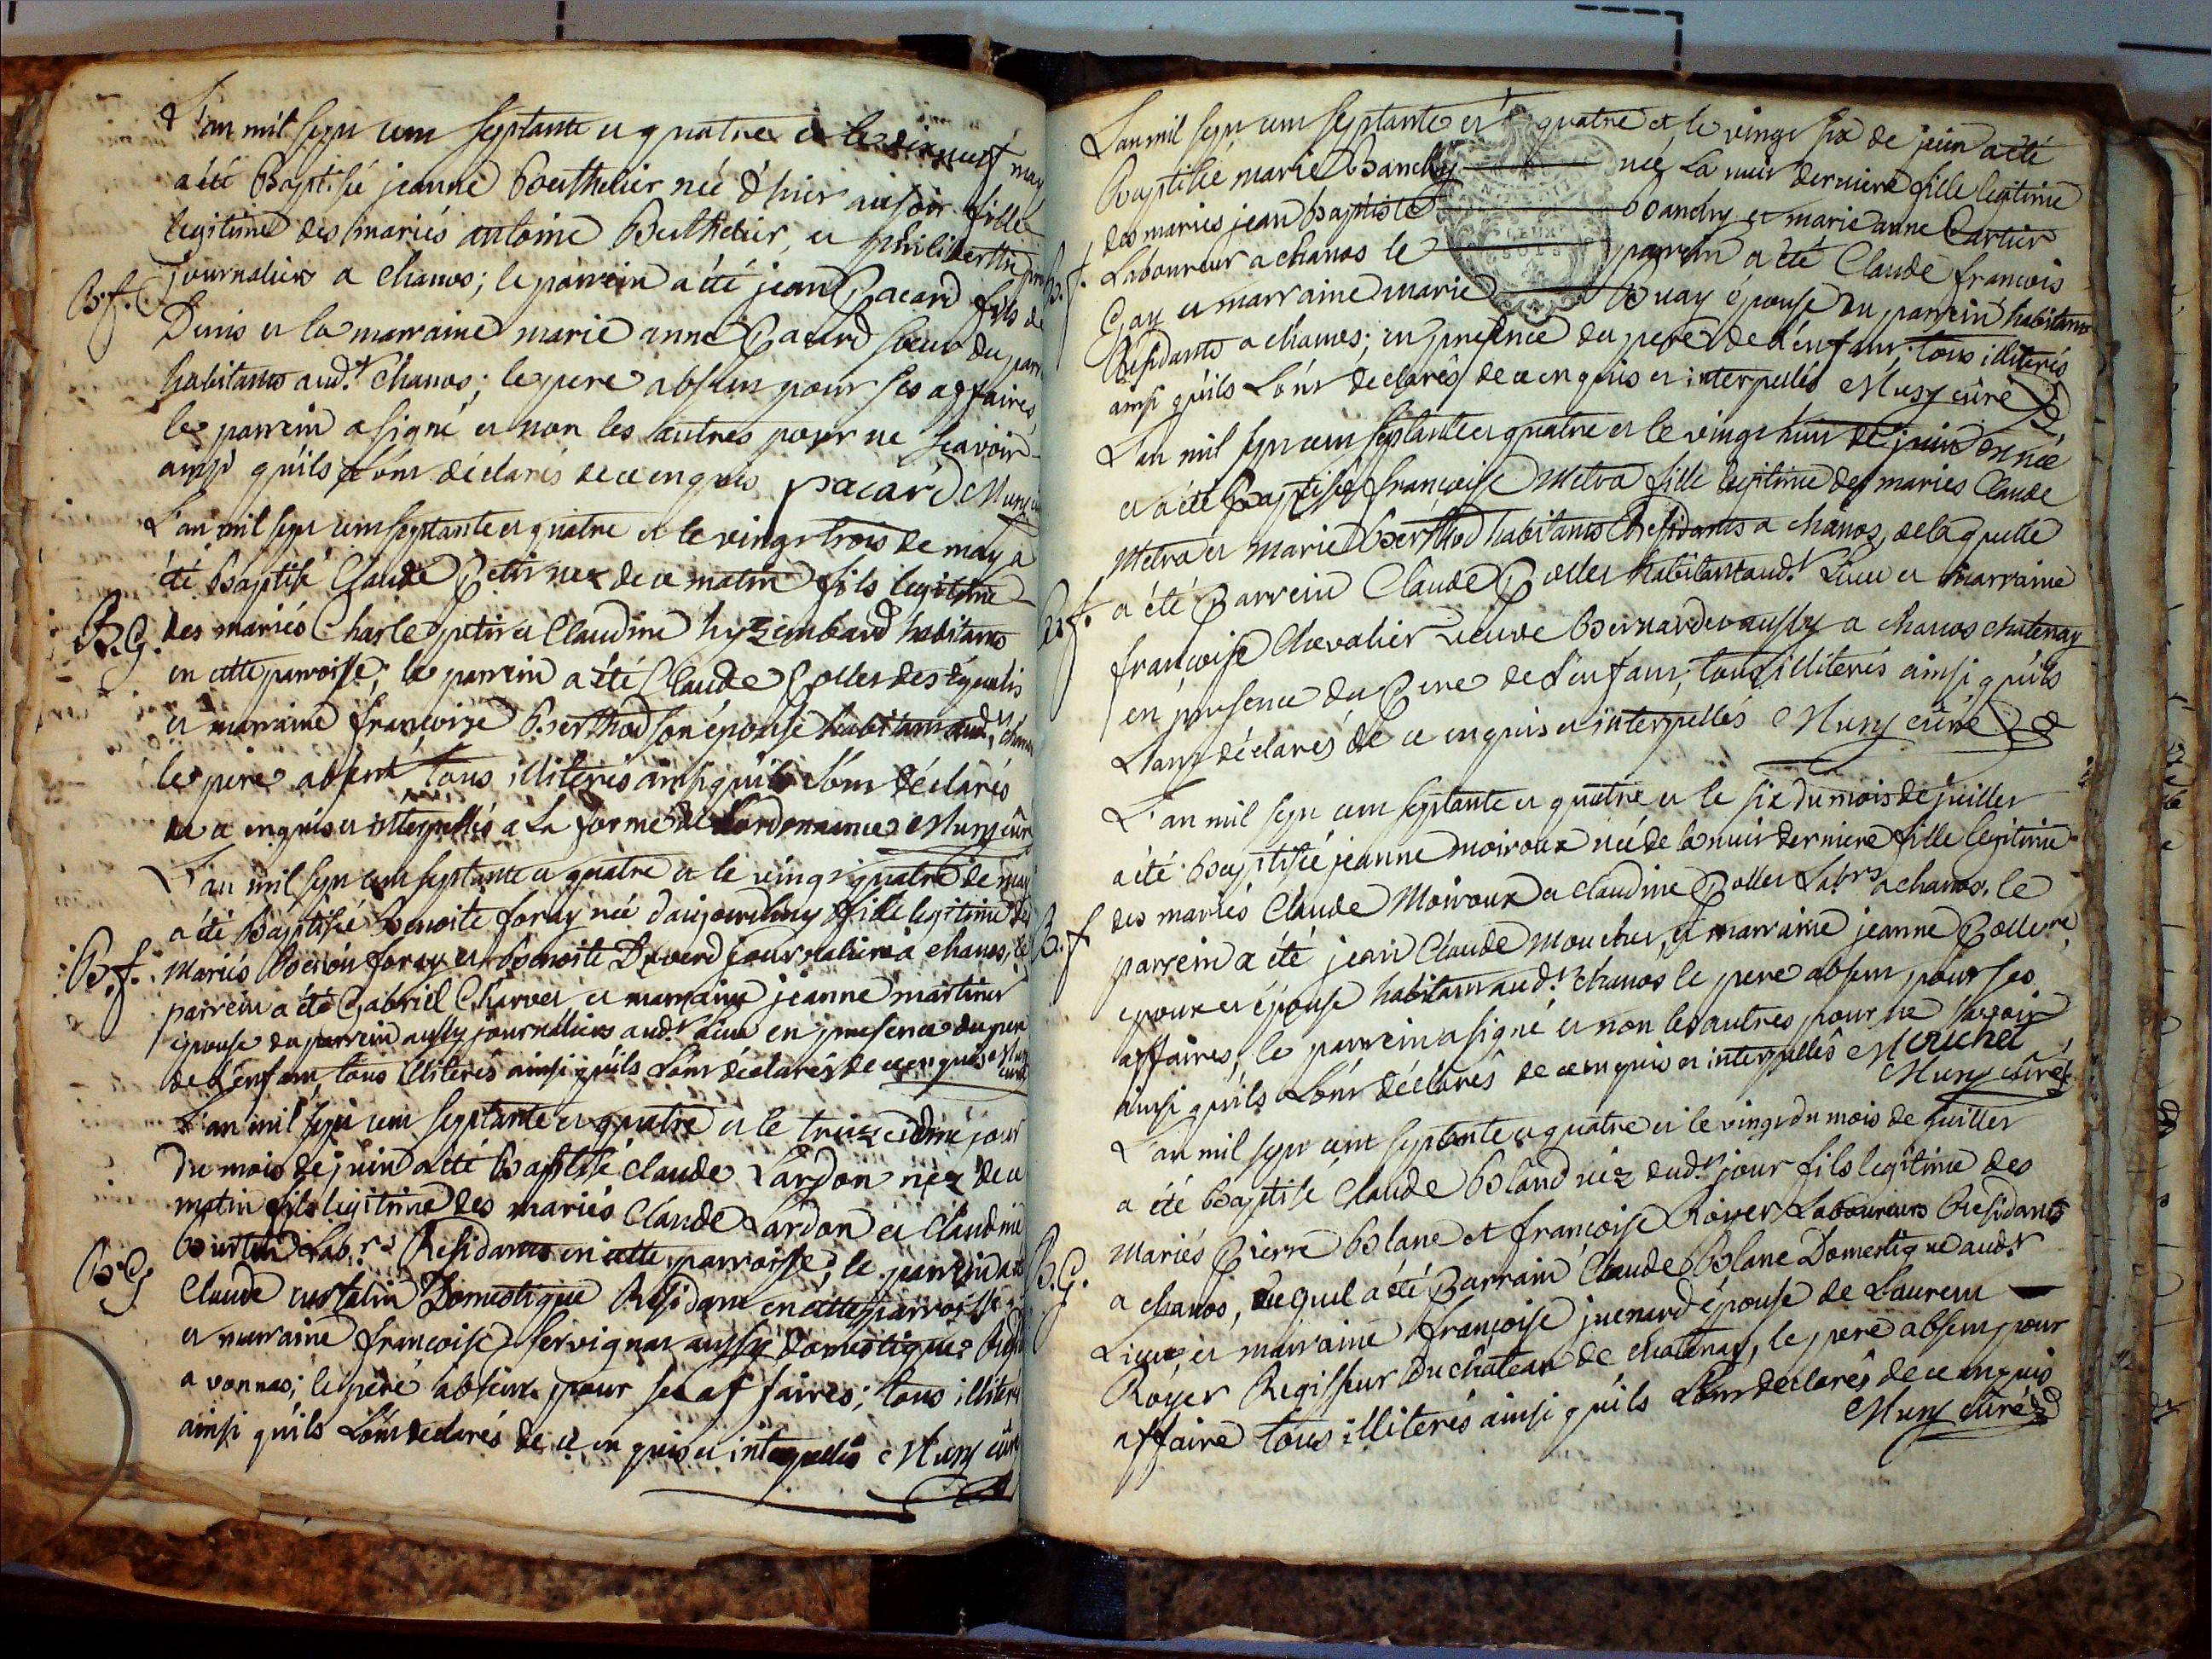 L'an mil sept cent septante et quatre et le dixneuf may
a été Baptisée jeanne Berthelier née d'hier au soir fille
legitime des mariés antoine Berthelier et philiberthe
B.f. journaliers a chanos; le parrein a été jean Pacard fils de
Denis et la marraine marie anne Pacard soeur du parr
habitants aud.t chanos; le pere absent pour ses affaires
le parrein a signé et non les autres pour ne scavoir
ainsi qu'ils L'ont déclarés de ce enquis pacard Muny
L'an mil sept cent septante et quatre et le vingt trois de may a
été Baptisé Claude Petit nez de ce matin fils legitime
B.G. des mariés Charle petit et Claudine habitants
en cette parroisse; le parrein a été Claude Collet des
et marraine françoise Berthod son épouse habitant aud.t chanos
le pere absent tous illiterés ainsi qu'ils L'ont déclarés
de ce enquis et interpellés a la forme de L'ordonnance Muny curé
L'an mil sept cent septante et quatre et le vingt quatre de may
a été Baptisée Benoite foray née d'aujourdhuy fille legitime des
B.f. Mariés Benoit foray et Benoite Duverd journaliers a chanos, le
parrein a été Gabriel Charvet et marraine jeanne martinet
épouse du parrein aussy journalliers aud.t Lieu en presence du pere
de L'enfant, tous illiterés ainsi qu'ils L'ont déclarés de ce enquis Muny curé
L'an mil sept cent septante et quatre et le treizeieme jour
du mois de juin a été Baptisé Claude Lardon nez de ce
matin fils legitime des mariés Claude Lardon et Claudine
Lab.rs Residants en cette parroisse; le parrein a été
B.G. Claude Domestique Residant en cette parroisse
et marraine françoise servignat aussy domestique
a vonnas; le pere absent pour ses affaires; tous illiterés
ainsi qu'ils L'ont declarés de ce enquis et interpellés Muny curé
L'an mil sept cent septante et quatre et le vingt six de juin a été
Baptisée marie Bandry née La nuit derniere fille legitime
des mariés jean Baptiste Bandry et marie anne Cartier
B.f. Laboureur a chanos le parrein a été Claude francois
Gay et marraine marie Buay épouse du parrein habitants
Residants a chanos; en presence du pere de L'enfant; tous illiterés
ainsi qu'ils L'ont declarés de ce enquis et interpellés Muny curé
L'an mil sept cent septante et quatre et le vingt huit de juin est née
et a été Baptisée françoise Metra fille legitime des mariés Claude
Metra et Marie Berthod habitants Residants a chanos, de laquelle
B.f. a été Parrein Claude Collet habitant aud.t Lieu et marraine
françoise Chevalier veuve Bernard aussy a chanos chatenay
en presence du Pere de L'enfant; tous illiterés ainsi qu'ils
L'ont déclarés de ce enquis et interpellés Muny curé
L'an mil sept cent septante et quatre et le six du mois de juillet
a été Baptisée jeanne moiroux née de la nuit derniere fille legitime
des mariés Claude Moiroux et claudine Collet Lab.rs a chanos, le
B.f parrein a été jean Claude Mouchet, et marraine jeanne Collet
epoux et épouse habitant aud.t chanos le pere absent pour ses
affaires, le parrein a signé et non les autres pour ne savoir
ainsi qu'ils L'ont déclarés de ce enquis et interpellés Mouchet
Muny curé
L'an mil sept cent septante et quatre et le vingt du mois de juillet
a été Baptisé Claude Bland néz dud.t jour fils legitime des
Mariés Pierre Blanc et françoise Royer Laboureurs Residants
B.G. a chanos, duquel a été Parrain Claude Blanc Domestique aud.t
Lieu, et marraine françoise juenard épouse de Laurent
Royer Regisseur du chateau de chatenay, le pere absent pour
affaire tous illiterés ainsi qu'ils L'ont declarés de ce enquis
Muny curé